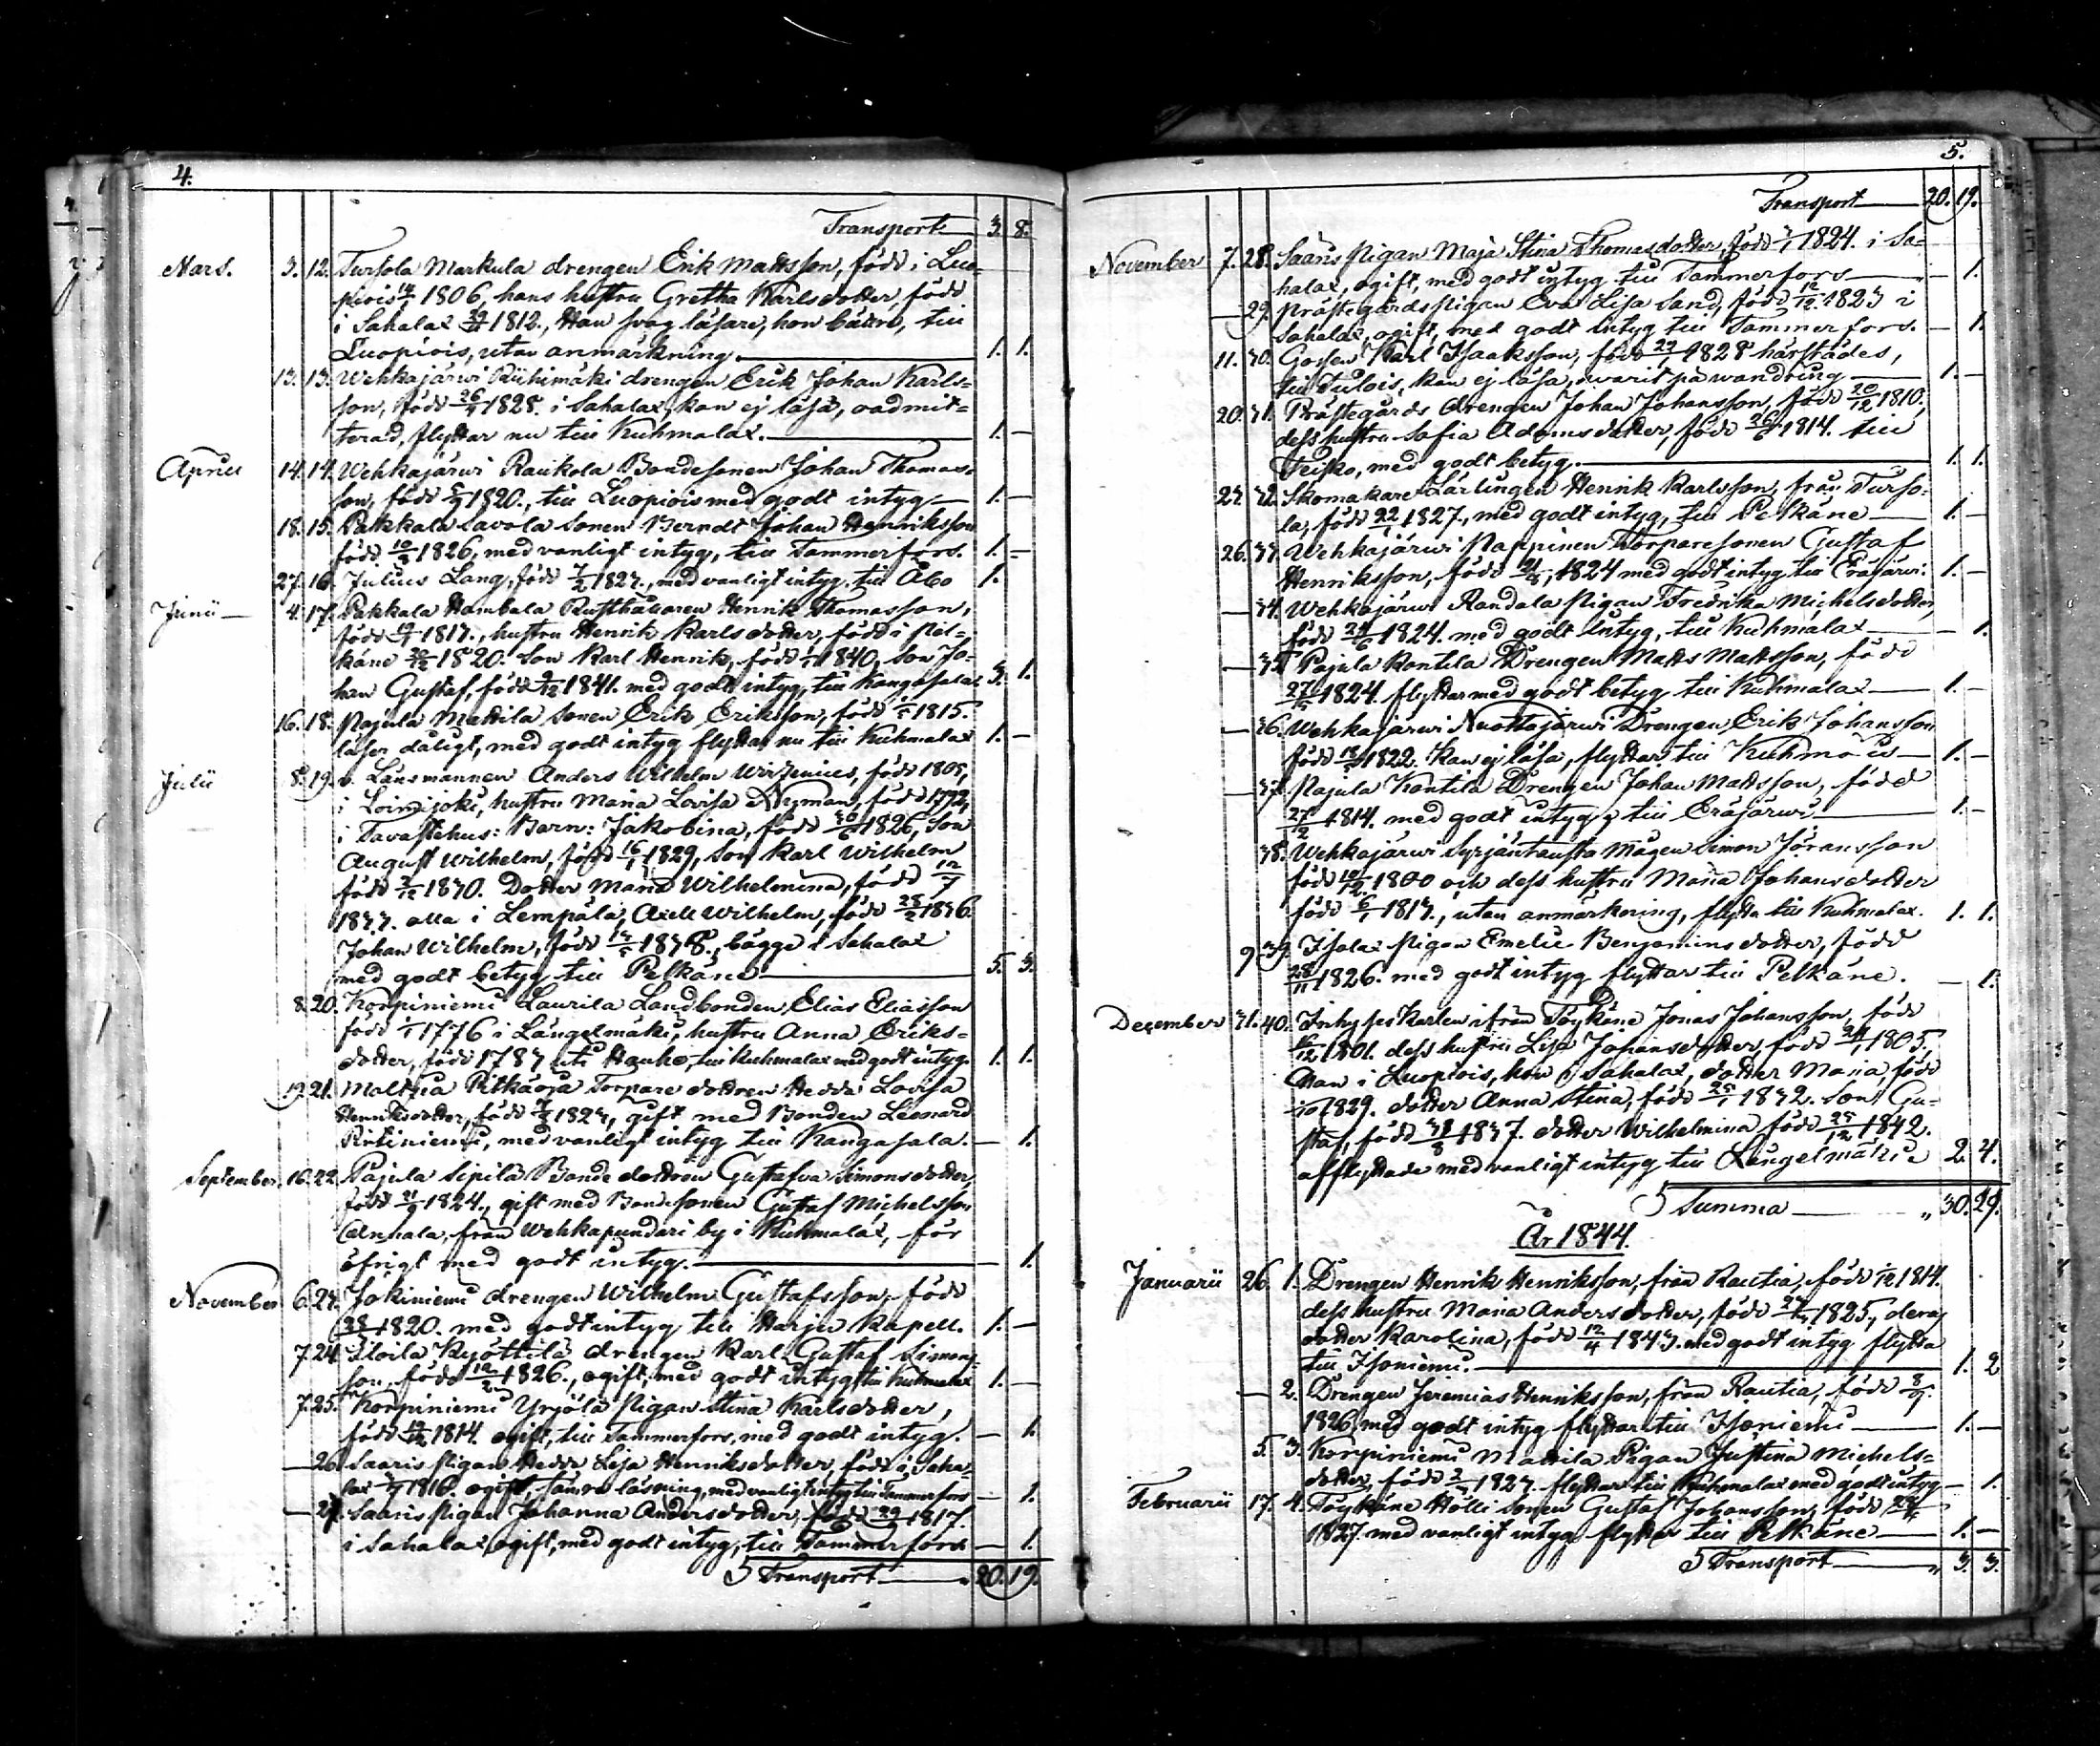 4.
Transport 3. 8.
Mars. 3. 12. Tursola Markula drengen Erik Mattsson, född i Luo-
piois 14/ 1806, hans hustru Gretha Karlsdotter, född
i Sahalax 1812., Han svag läsare, hon bättre, till
Luopiois, utan anmärkning. 1. 1.
13. 13. Wehkajärwi Riihimäki drengen Erik Johan Karls-
son, född 26/ 1828. i Sahalax, kan ej läsa, oadmit-
terad, flyttar nu till Kuhmalax. 1. —
April 14. 14. Wehkajärwi Raukola Bondesonen Johan Thomas-
son, född 1820., till Luopiois med godt intyg 1. —
18. 15. Pakkala Savola Sonen Berndt Johan Henriksson
född 10/ 1826, med vanligt intyg, till Tammerfors. 1. —
27. 16. Julius Lang, född /2 1823., med vanligt intyg, till Åbo 1.
Junii 4. 17. Pakkala Hambala Rusthållaren Henrik Thomasson,
född 1813., hustru Henrik Karlsdotter, född i Pel-
käne 1820. Son Karl Henrik, född 1840, Son Jo-
han Gustaf, född 1841. med godt intyg, till Kangasala 3. 1.
16. 18. Pajula Mattila Sonen Erik Eriksson, född 1815.
läser dåligt, med godt intyg flyttar nu till Kuhmalax 1. —
Julii 8. 19. v. Länsmannen Anders Wilhelm Wirzenius, född 1805,
i Loimijoki, hustru Maria Lovisa Nyman, född 1792,
i Tavastehus: Barn: Jakobina, född 1826, Son
August Wilhelm, född 16/ 1829, Son Karl Wilhelm
född 1830. Dotter Maria Wilhelmina, född 12/
1833. alla i Lempäla, Axell Wilhelm, född 28/2 1836.
Johan Wilhelm, född 1838., bägge i Sahalax
med godt betyg till Pelkäne. 5. 3.
8. 20. Korpiniemi Laurila Landbonden Elias Eliasson
född 1776 i Längelmäki, hustru Anna Eriks-
dotter, född 1783 uti Hauho, till Kuhmalax med godt intyg. 1. 1.
19. 21. Maltzia Pitkäoja Torpare dottren Hedda Lovisa
Henriksdotter, född 1823, gift med Bonden Leonard
Pirtiniemi, med vanligt intyg till Kangasala. — 1.
September. 16. 22. Pajula Sipilä Bonde dottren Gustafva Simonsdotter,
född 21/ 1824., gift med Bondesonen Gustaf Michelsson
Annala, från Wehkapundari by i Kuhmalax, för
öfrigt med godt intyg. — 1.
November 6. 23. Jokiniemi drengen Wilhelm Gustafsson, född
1820. med godt intyg till Harju Kapell. 1. —
7. 24. Iloila Kyöttilä drengen Karl Gustaf Simons-
son, född 1826., ogift, med godt intyg till Kuhmalax 1. —
7. 25. Korpiniemi Yrjölä Pigan Stina Karlsdotter,
född 1814. ogift, till Tammerfors, med godt intyg. — 1.
— 26. Saaris Pigan Hedda Lisa Henriksdotter, född i Saha-
lax 1816. ogift, sämre läsning, med vanligt intyg till Tammerfors — 1.
— 27. Saaris Pigan Johanna Andersdotter, född 29/ 1817.
i Sahalax, ogift, med godt intyg, till Tammerfors — 1.
Transport 20. 19.
5.
Transport 20. 19.
November 7. 28. Saaris Pigan Maja Stina Thomasdotter, född 1824. i Sa-
halax, ogift, med godt intyg till Tammerfors — 1.
— 29. Prästegårdspigan Eva Lisa Sand, född 12/12 1823 i
Sahalax, ogift, med godt intyg till Tammerfors. — 1.
11. 30. Gossen Karl Isaaksson, född 29/ 1828 härstädes,
till Tulois, kan ej läsa, warit på wandring 1. —
20. 31. Prästegårds drengen Johan Johansson, född 20/12 1810,
dess hustru Sofia Adamsdotter, född 26/6 1814. till
Teisko, med godt betyg. 1. 1.
23. 32. Skomakare Lärlingen Henrik Karlsson, från Turso-
la, född 22/ 1827., med godt intyg, till Pelkäne 1. —
26. 33. Wehkajärwi Pappinen Torparesonen Gustaf
Henriksson, född 21/ 1824 med godt intyg till Eräjärwi. 1. —
— 34. Wehkajärwi Randala Pigan Fredrika Michelsdotter,
född 24/6 1824. med godt intyg, till Kuhmalax — 1.
— 35. Pajula Kantila Drengen Matts Mattsson, född
27/ 1824 flyttar med godt betyg till Kuhmalax 1. —
— 36. Wehkajärwi Nuottajärwi Drengen Erik Johansson
född 13/ 1822. Kan ej läsa, flyttar till Kuhmois 1. —
— 37. Pajula Kantila Drengen Johan Mattsson, född
27/2 1814. med godt intyg, till Eräjärwi 1. —
38. Wehkajärwi Syrjäntausta Mågen Simon Jöransson
född 10/12 1800 och dess hustru Maria Johansdotter
född 6/ 1813., utan anmärkning, flytta till Kuhmalax. 1. 1.
9 39. Isalax Pigan Emelie Benjaminsdotter, född
28/11 1826. med godt intyg flyttar till Pelkäne. — 1.
December 31. 40. Inhyses Karlen ifrån Töykäne Jonas Johansson, född
/12 1801. dess hustru Lisa Johansdotter, född 24/ 1805.
Han i Luopiois, hon i Sahalax, dotter Maria, född
1829. dotter Anna Stina, född 25/1 1832. Son Gu-
staf, född 31/8 1837. dotter Wilhelmina född 25/12 1842.
afflyttade med vanligt intyg till Längelmäki 2. 4.
Summa „ 30. 29.
År 1844.
Januarii 26. 1. Drengen Henrik Henriksson, från Rautia, född 1814.
dess hustru Maria Andersdotter, född 1825, deras
dotter Karolina, född 12/4 1843. med godt intyg flytta
till Isoniemi. 1. 2
— 2. Drengen Jeremias Henriksson, från Rautia, född 8/9.
1826, med godt intyg flyttar till Isoniemi 1. —
5. 3. Korpiniemi Mattila Pigan Justina Michels-
dotter, född 1823. flyttar till Kuhmalax med godt intyg — 1.
Februarii 17. 4. Töykäne Hölli Sonen Gustaf Johansson, född
1827. med vanligt intyg flyttar till Pelkäne 1. —
Transport „ 3. 3.